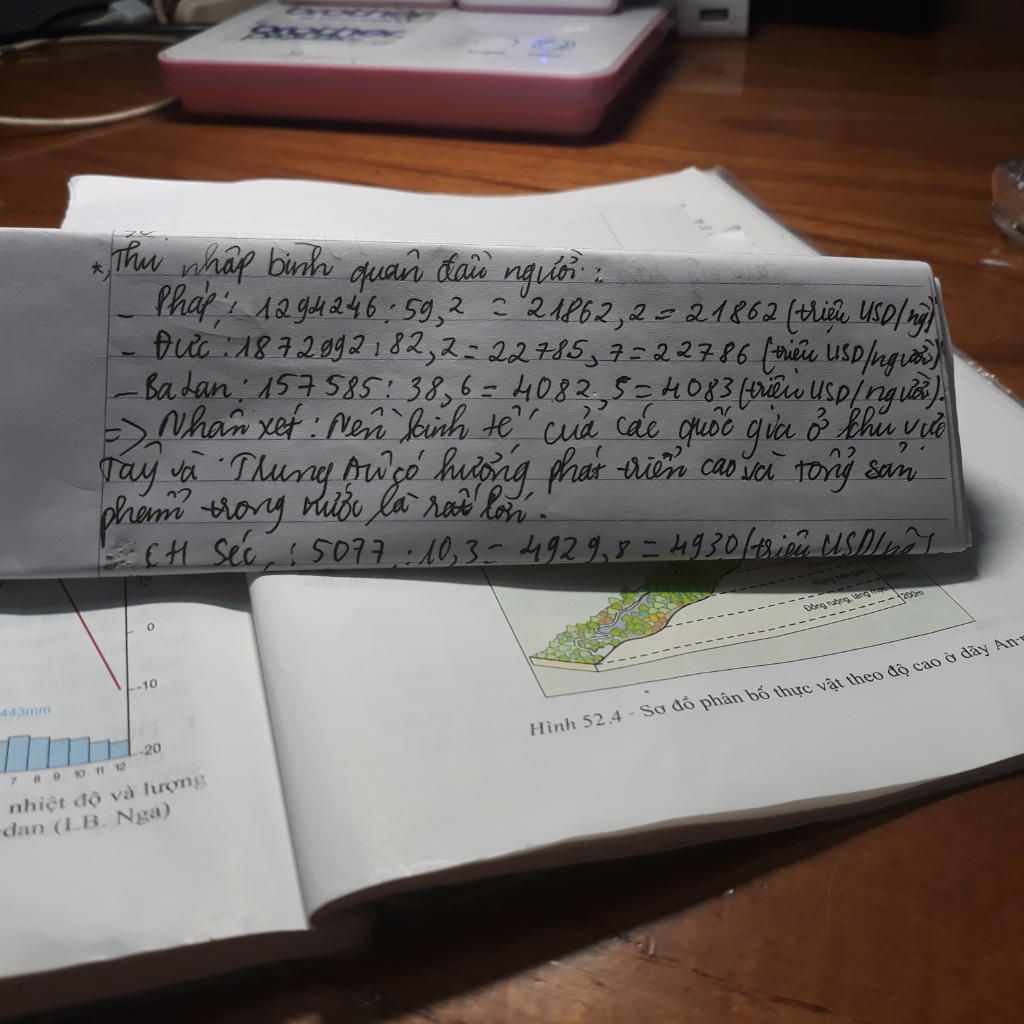 brother
brother
*, Thu nhập bình quân đầu người:
- Pháp: 1294246:59,2 = 21862,2 = 21862 (triệu USD/ng)
- Đức: 1872992:82,2 = 22785,7 = 22786 (triệu USD/người)
- Ba Lan: 157585: 38,6 = 4082,5 = 4083 (triệu USD/người).
=> Nhận xét: Nền kinh tế của các quốc gia ở khu vực
Tây và Trung Âu có hướng phát triển cao và tổng sản
phẩm trong nước là rất lớn.
CH Séc: 5077:10,3 = 4929,8 = 4930 (triệu USD/ng)
Rừng hỗn giao
800m
Đồng ruộng, làng mạc
200m
Hình 52.4 - Sơ đồ phân bố thực vật theo độ cao ở dãy An-
0
-10
443mm
-20
7 8 9 10 11 12
nhiệt độ và lượng
-dan (LB. Nga)